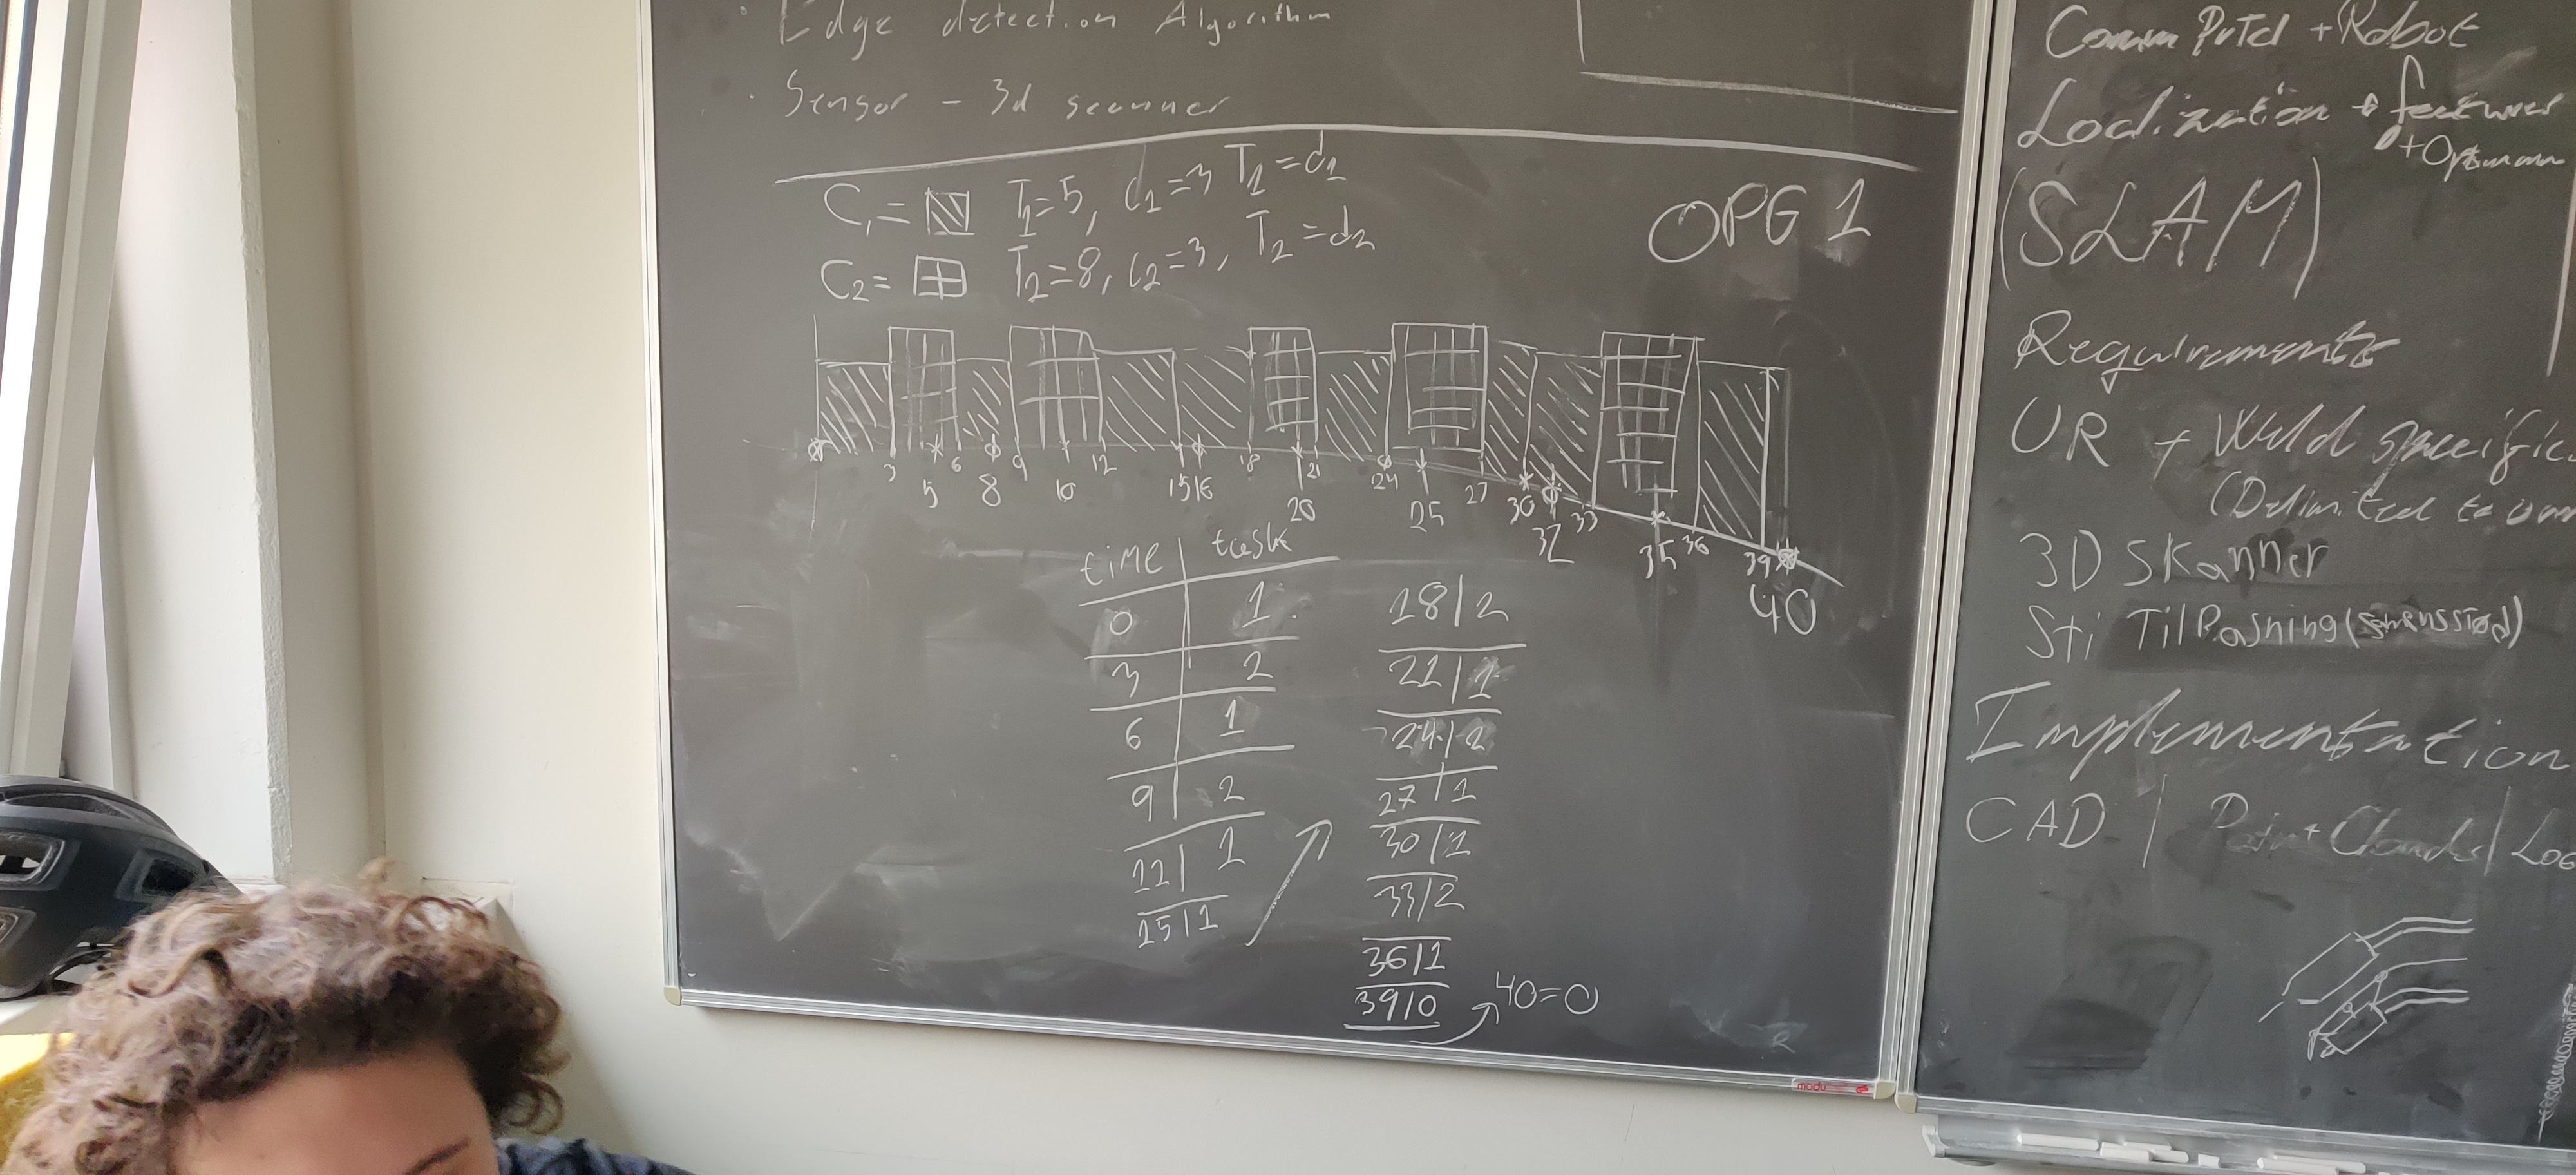 · Edge detection Algorithm
· Sensor - 3d scanner
C₁ = T₁=5, C₁=3 T₁=d₁
C₂ = T₂=8, C₂=3, T₂=d₂
OPG 1
3 5 6 8 9 10 12 15 16 18 20 21 24 25 27 30 32 33 35 36 39 40
time | task
0 | 1
3 | 2
6 | 1
9 | 2
12 | 1
15 | 1
18 | 2
21 | 1
24 | 2
27 | 1
30 | 1
33 | 2
36 | 1
39 | 0
40=0
Comm + Robot
Loclization + features
(SLAM)
Requirements
UR + Weld
3D Skanner
Sti TilPasning
Implementation
CAD | Point Clouds |